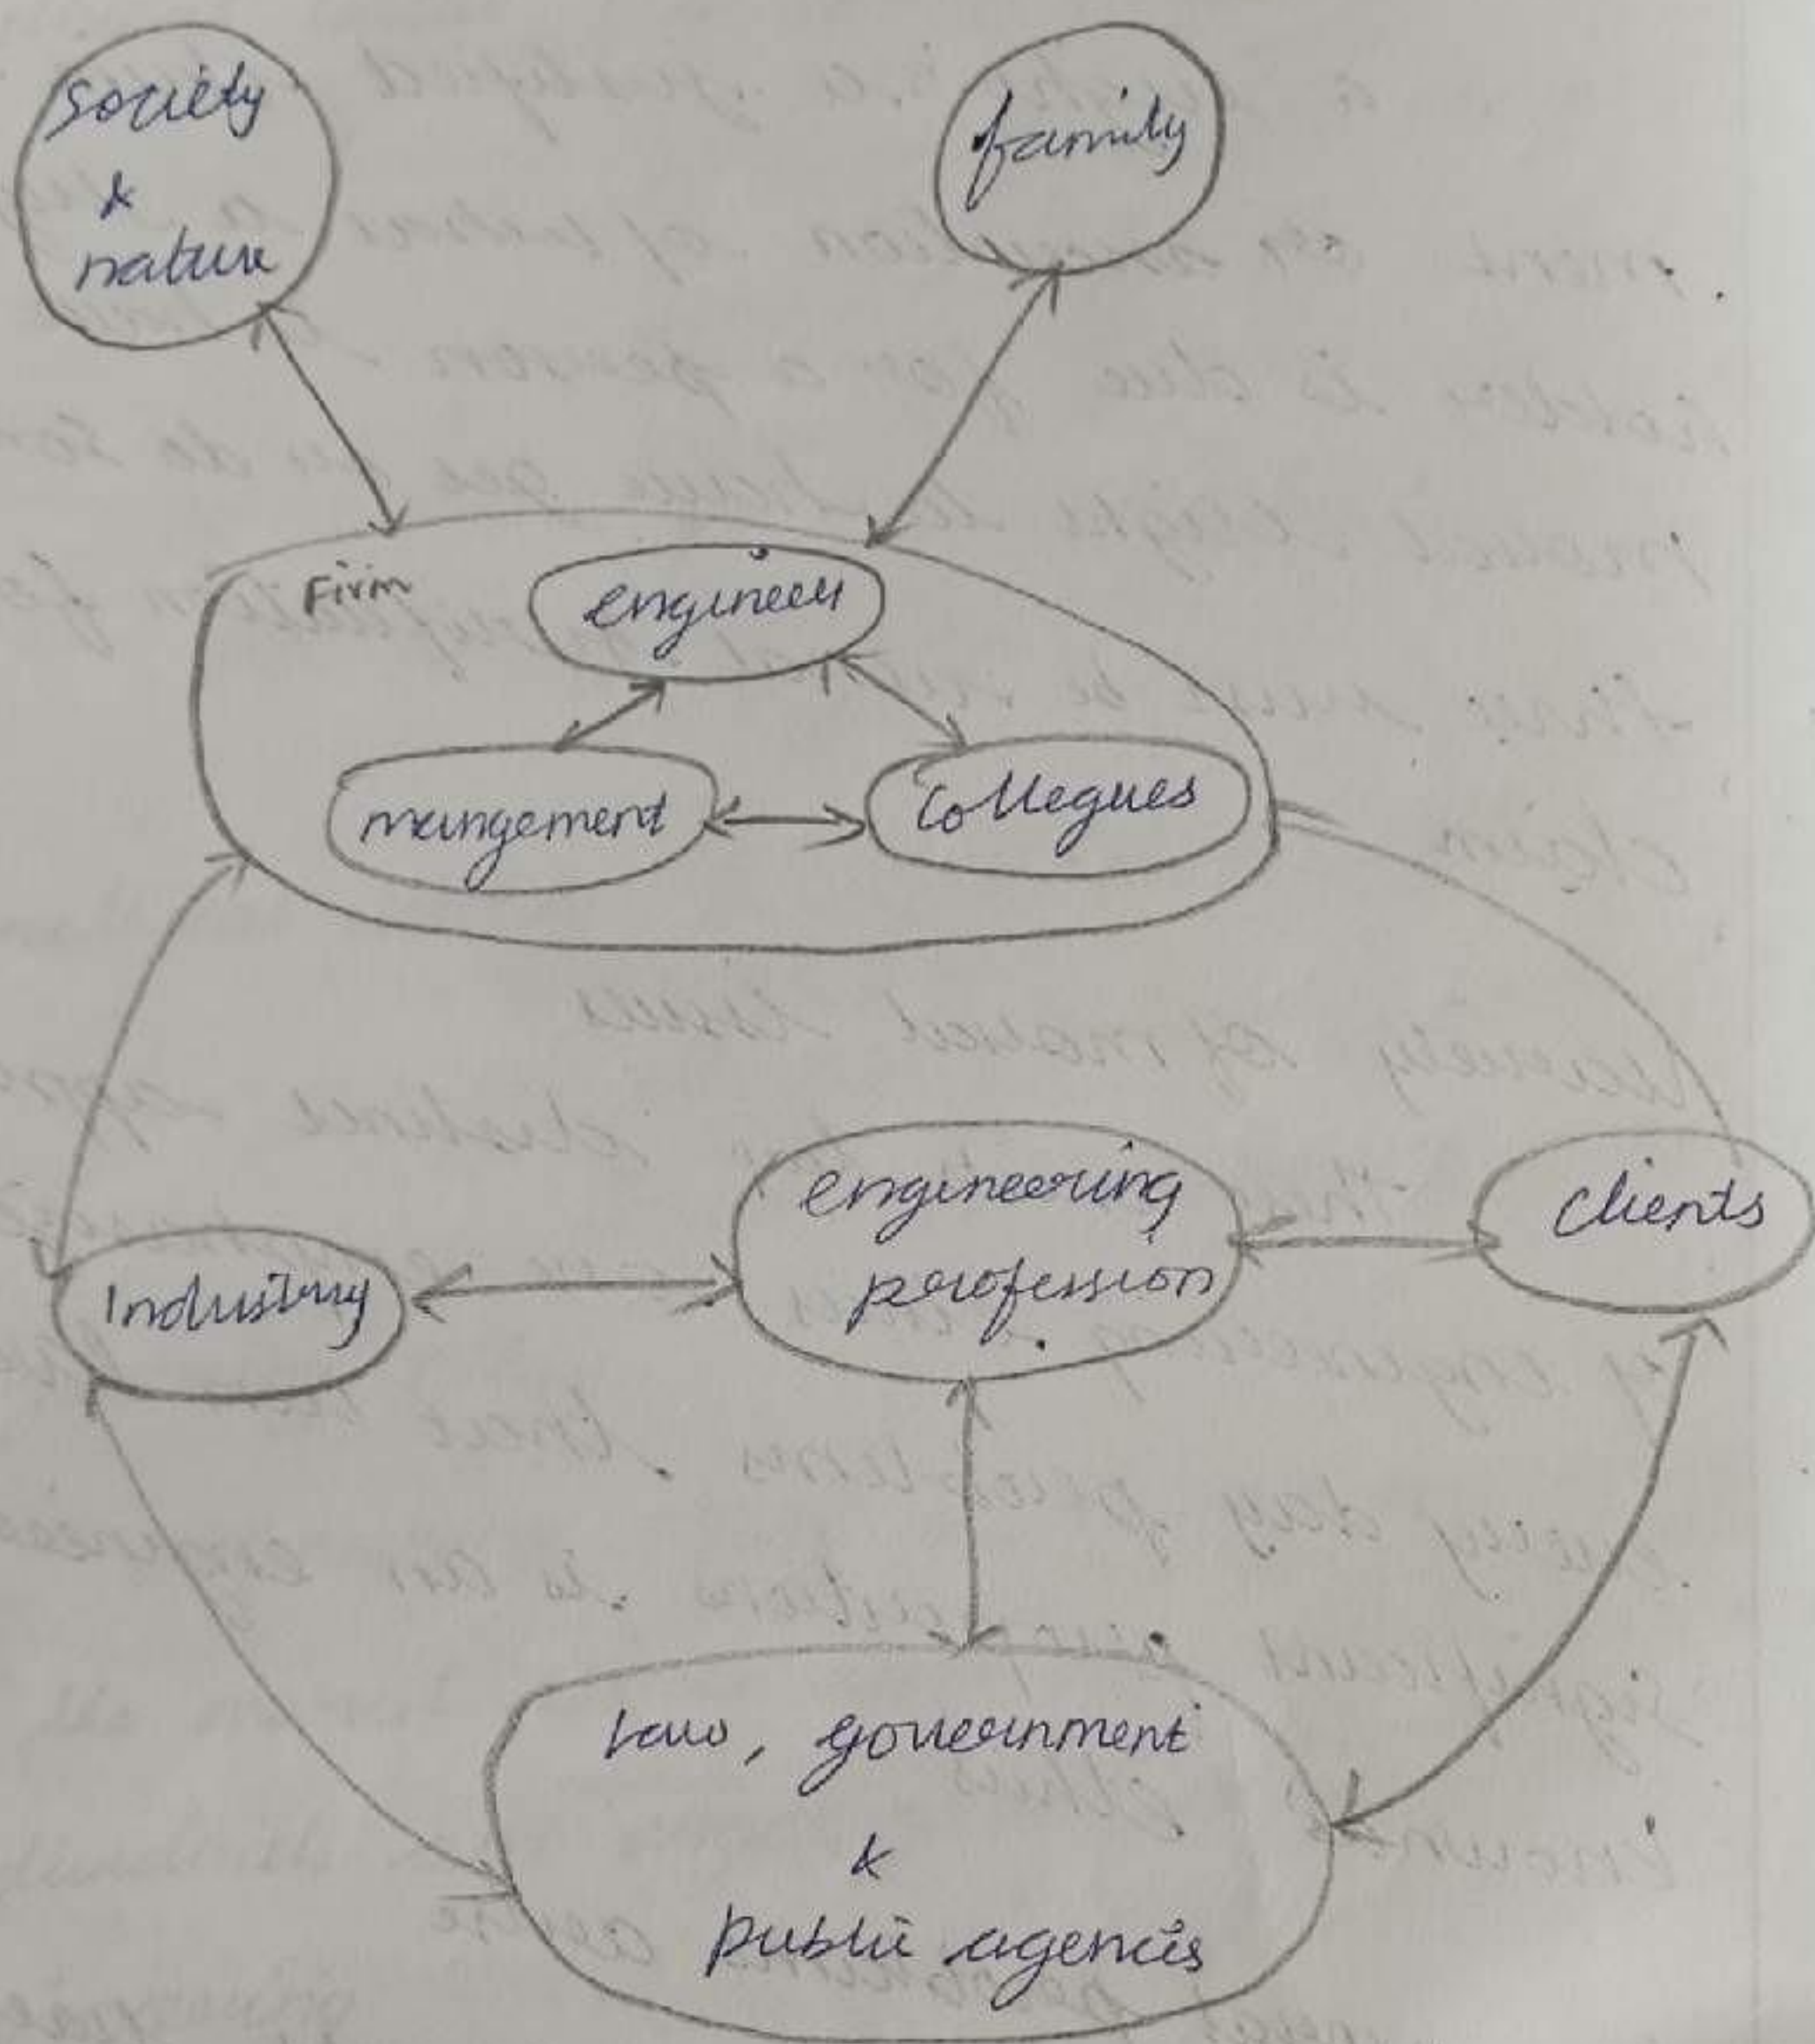 Society
&
nature
family
Firm
engineer
mangement
Collegues
engineering
profession
clients
Industry
Law, government
&
public agencis